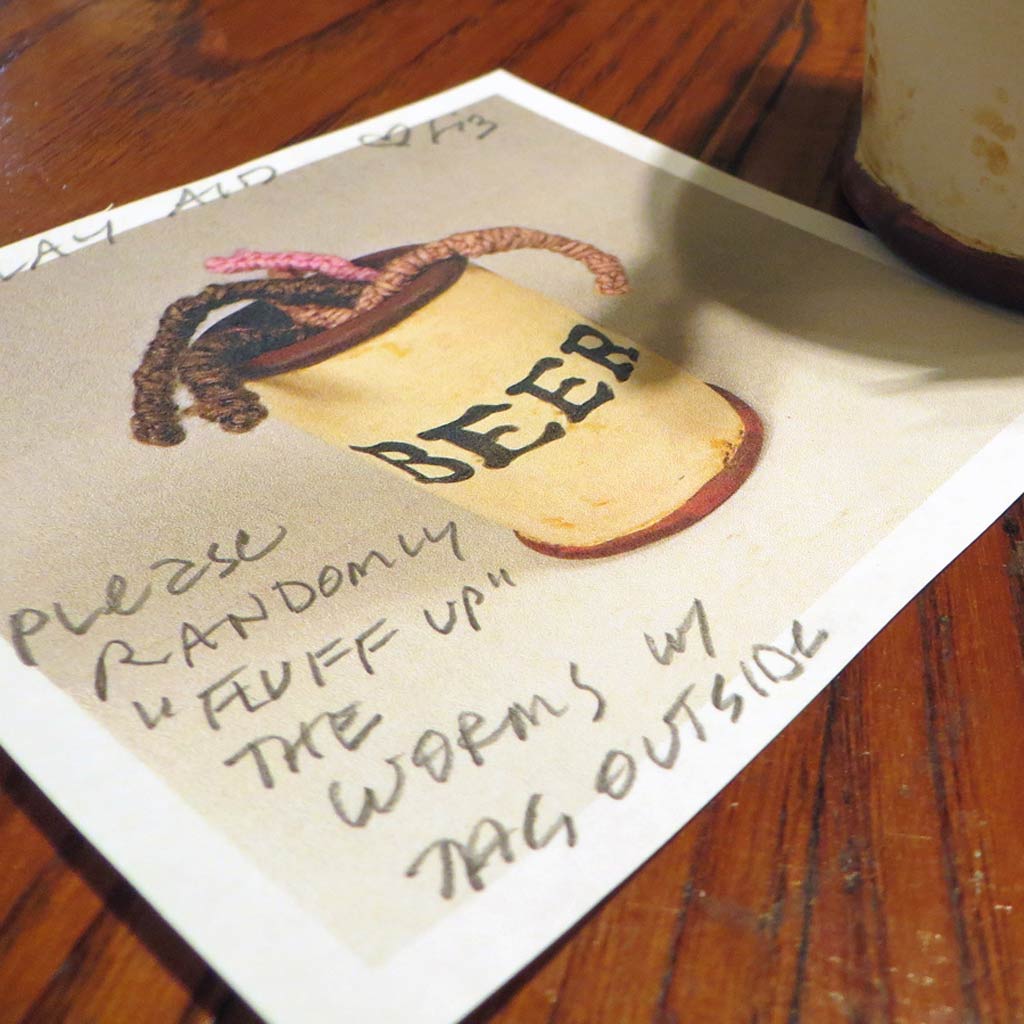 LAY AID ♡ Liz
BEER
PLEASE
RANDOMLY
"FLUFF UP"
THE
WORMS W/
TAG OUTSIDE